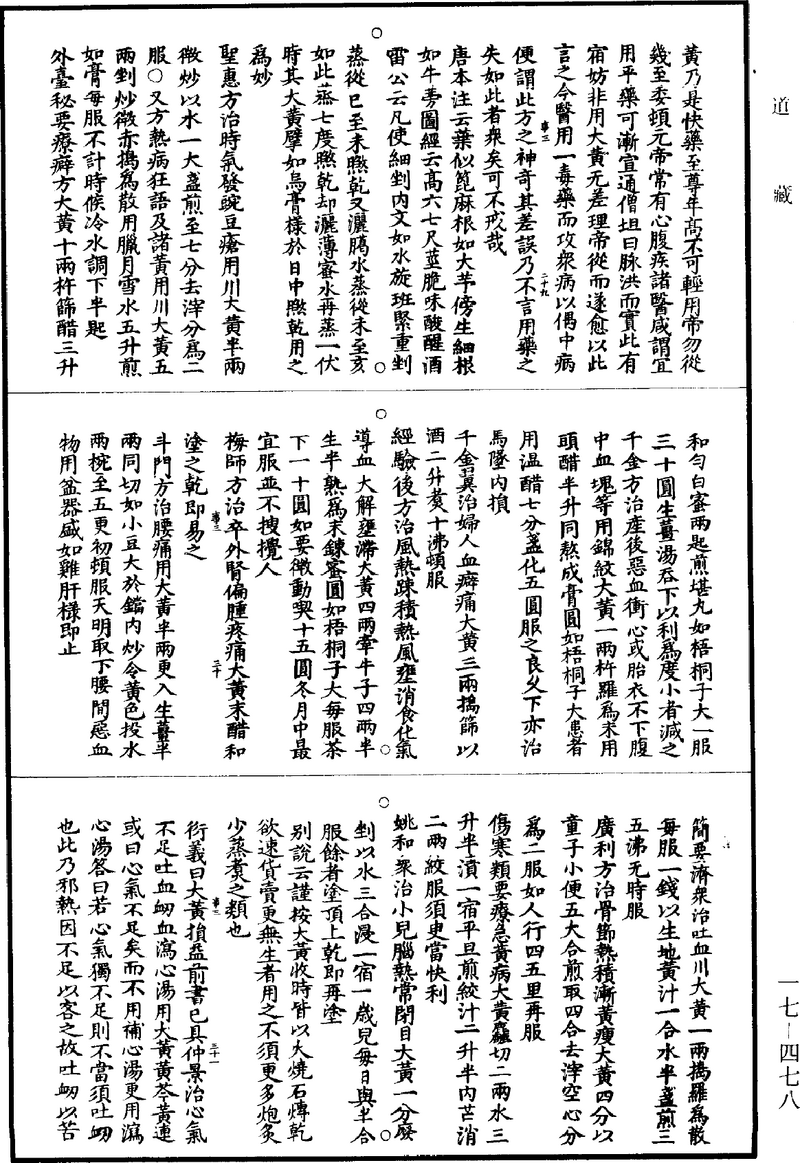 道藏
黃乃是快藥至尊年高不可輕用帝勿從
幾至委頓元帝常有心腹疾諸醫咸謂宜
用平藥可漸宣通僧坦曰脉洪而實此有
宿妨非用大黃无差理帝從而遂愈以此
言之今醫用一毒藥而攻衆病以偶中病
便謂此方之神奇其差誤乃不言用藥之
失如此者衆矣可不戒哉
唐本注云葉似蓖麻根如大芋傍生細根
如牛蒡圖經云高六七尺莖脆味酸醒酒
雷公云凡使細剉内文如水旋斑緊重剉
蒸從巳至未㬠乾又灑臈水蒸從未至亥
如此蒸七度㬠乾却灑薄蜜水再蒸一伏
時其大黃擘如烏膏樣於日中㬠乾用之
爲妙
聖惠方治時氣發豌豆瘡用川大黃半兩
微炒以水一大盞煎至七分去滓分爲二
服○又方熱病狂語及諸黃用川大黃五
兩剉炒微赤擣爲散用臘月雪水五升煎
如膏每服不計時候冷水調下半匙
外臺秘要療癖方大黃十兩杵篩醋三升
和勻白蜜兩匙煎堪丸如梧桐子大一服
三十圓生薑湯吞下以利爲度小者減之
千金方治産後惡血衝心或胎衣不下腹
中血塊等用錦紋大黃一兩杵羅爲末用
頭醋半升同熬成膏圓如梧桐子大患者
用溫醋七分盞化五圓服之良久下亦治
馬墜内損
千金翼治婦人血癖痛大黃三兩擣篩以
酒二升煑十沸頓服
經驗後方治風熱疎積熱風壅消食化氣
導血大解壅滯大黃四兩牽牛子四兩半
生半熟爲末鍊蜜圓如梧桐子大每服茶
下一十圓如要微動喫十五圓冬月中最
宜服並不搜攪人
梅師方治卒外腎偏腫疼痛大黃末醋和
塗之乾即易之
斗門方治腰痛用大黃半兩更入生薑半
兩同切如小豆大於鐺内炒令黃色投水
兩椀至五更初頓服天明取下腰間惡血
物用盆器盛如雞肝樣即止
簡要濟衆治吐血川大黃一兩擣羅爲散
每服一錢以生地黃汁一合水半盞煎三
五沸无時服
廣利方治骨節熱積漸黃瘦大黃四分以
童子小便五大合煎取四合去滓空心分
爲二服如人行四五里再服
傷寒類要療急黃病大黃麤切二兩水三
升半漬一宿平旦煎絞汁二升半内芒消
二兩絞服須臾當快利
姚和衆治小兒腦熱常閉目大黃一分麤
剉以水三合浸一宿一歲兒每日與半合
服餘者塗頂上乾即再塗
別說云謹按大黃收時皆以火燒石煿乾
欲速貨賣更無生者用之不須更多炮炙
少蒸煑之類也
衍義曰大黃損益前書已具仲景治心氣
不足吐血衂血瀉心湯用大黃黃芩黃連
或曰心氣不足矣而不用補心湯更用瀉
心湯答曰若心氣獨不足則不當須吐衂
也此乃邪熱因不足以客之故吐衂以苦
事三
二十九
事三
三十
事三
三十一
一七—四七八